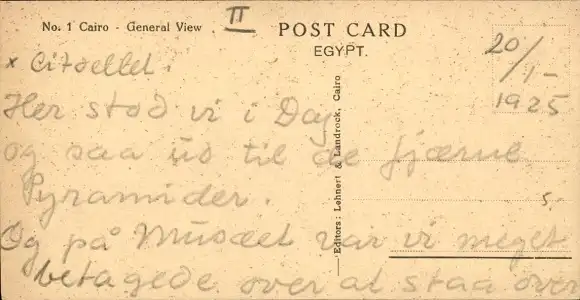 No. 1 Cairo - General View.
II
POST CARD
EGYPT.
20/1-
1925
x Citadellet.
Her stod vi i Dag
og saa ud til de fjærne
Pyramider.
Og på Musæet var vi meget
betagede over at staa over
Editors: Lehnert & Landrock, Cairo
5-